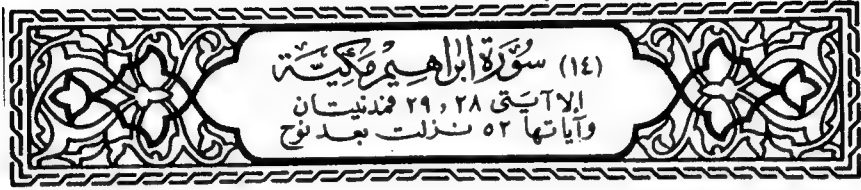 (١٤) سُورَة ابْراهِيمْ مَكِيَّة
إلا آيَتَى ٢٨ و ٢٩ فمدنيتان
وآياتها ٥٢ نزلت بعد نوح